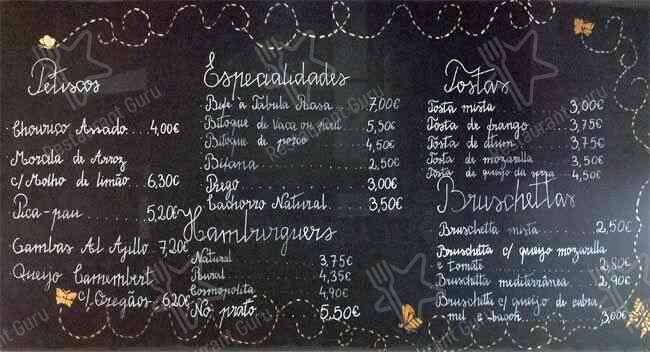 Petiscos
Chouriço Assado... 4,00€
Morcela de Arroz
c/Molho de limão.. 6,30€
Pica-pau ........ 5,20€
Gambas Al Ajillo.. 7,20€
Queijo Camembert
c/Oregãos .. 6,20€
Especialidades
Bife à Tábula Rasa ... 7,00€
Bitoque de Vaca ou ..... 5,50€
Bitoque de porco ..... 4,50€
Bifana ........ 2,50€
Prego ........ 3,00€
Cachorro Natural...... 3,50€
Hamburguers
Natural ........ 3,75€
Plural ........ 4,35€
Cosmopolita ........ 4,90€
No prato ........ 5,50€
Tostas
Tosta mista ........ 3,00€
Tosta de frango ..... 3,75€
Tosta de atum ...... 3,75€
Tosta de mozarella .. 3,50€
Tosta de queijo da serra .. 4,50€
Bruschettas
Bruschetta mista ........ 2,50€
Bruschetta c/ queijo mozarella
e tomate ........ 2,80€
Bruschetta mediterrânea ... 2,90€
Bruschetta c/ queijo de cabra,
mel e bacon ........ 3,60€
Restaurant Guru